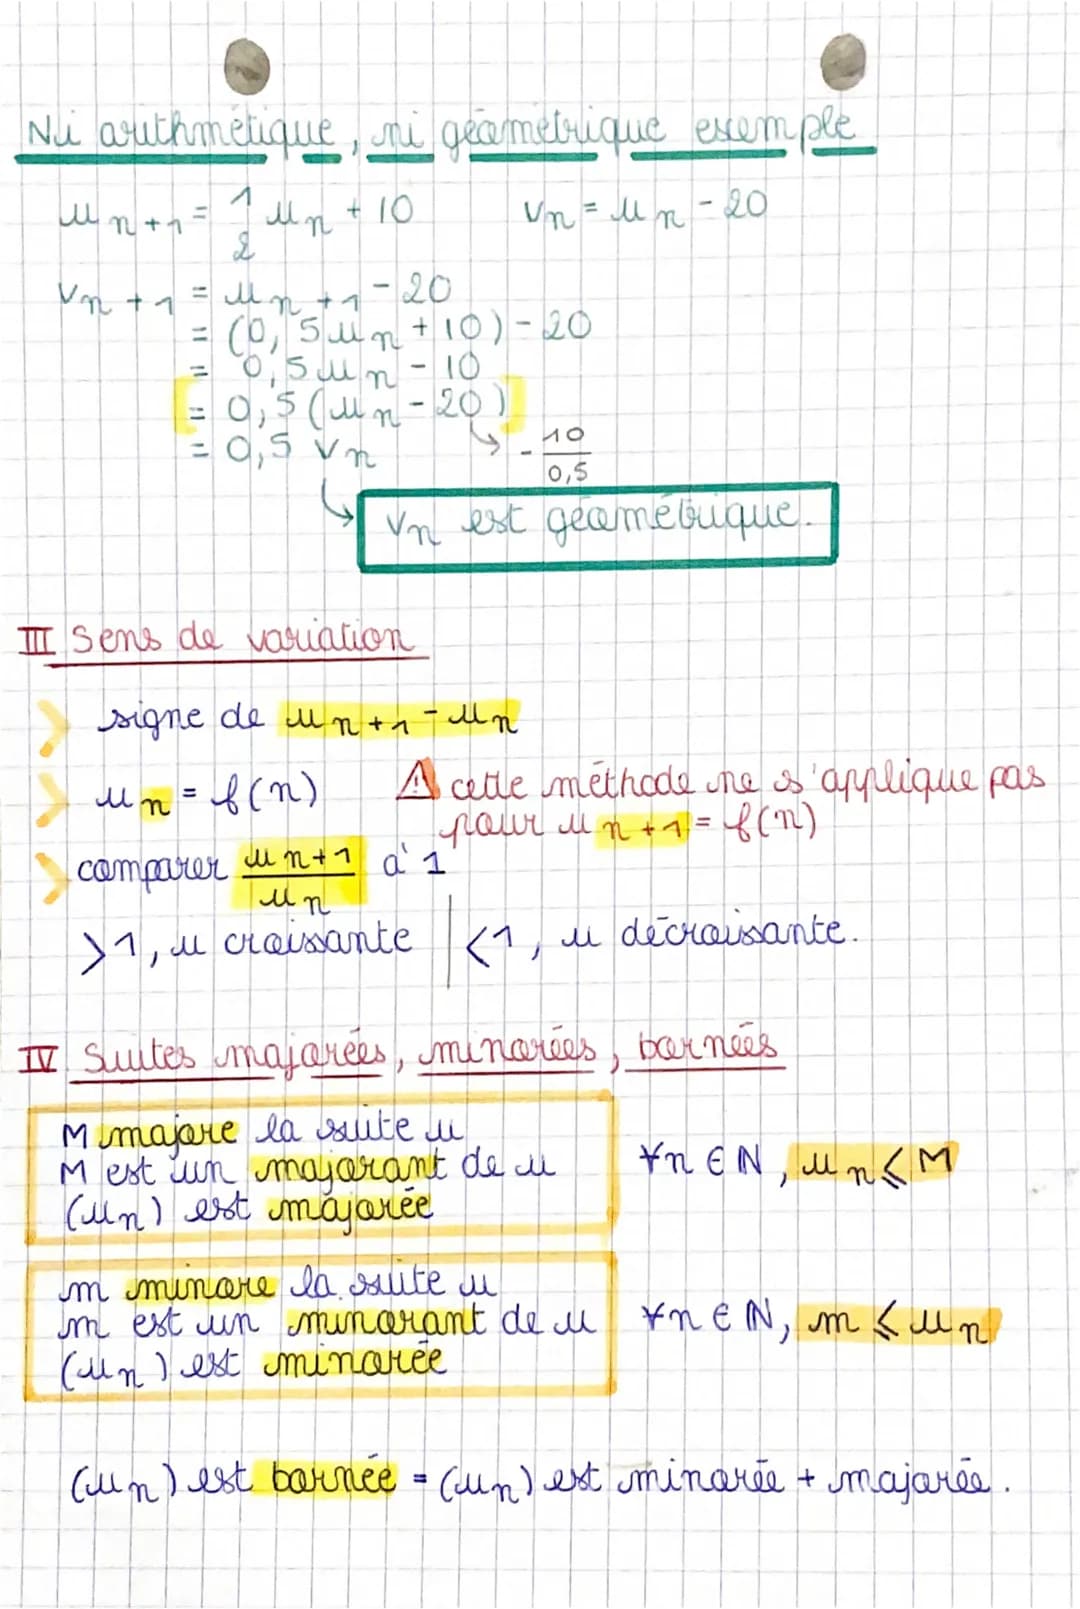 Ni arithmétique, ni géométrique exemple
u n+1 = 1/2 u n + 10    vn = u n - 20
vn+1 = u n+1 - 20
= (0,5 u n + 10) - 20
= 0,5 u n - 10
= 0,5 (u n - 20)
= 0,5 vn    - 10/0,5
vn est géométrique.
III Sens de variation
signe de u n+1 - u n
u n = f(n)    ⚠ cette méthode ne s'applique pas
pour u n+1 = f(n)
comparer u n+1 / u n à 1
>1, u croissante | <1, u décroissante.
IV Suites majorées, minorées, bornées
M majore la suite u
M est un majorant de u    ∀n ∈ ℕ, u n ⩽ M
(un) est majorée
m minore la suite u
m est un minorant de u    ∀n ∈ ℕ, m ⩽ u n
(un) est minorée
(un) est bornée = (un) est minorée + majorée.